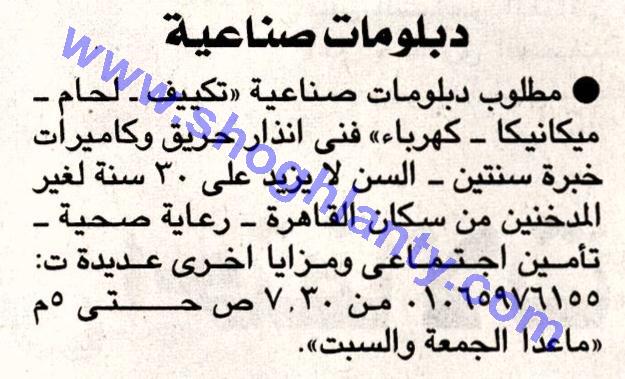 دبلومات صناعية
● مطلوب دبلومات صناعية «تكييف ـ لحام ـ
ميكانيكا ـ كهرباء» فنى انذار حريق وكاميرات
خبرة سنتين ـ السن لا يزيد على ٣٠ سنة لغير
المدخنين من سكان القاهرة ـ رعاية صحية ـ
تأمين اجتماعى ومزايا اخرى عديدة ت:
٠١٠٦٥٩٧٦١٥٥ من ٧,٣٠ ص حتى ٥م
«ماعدا الجمعة والسبت».
www.shoghlanty.com